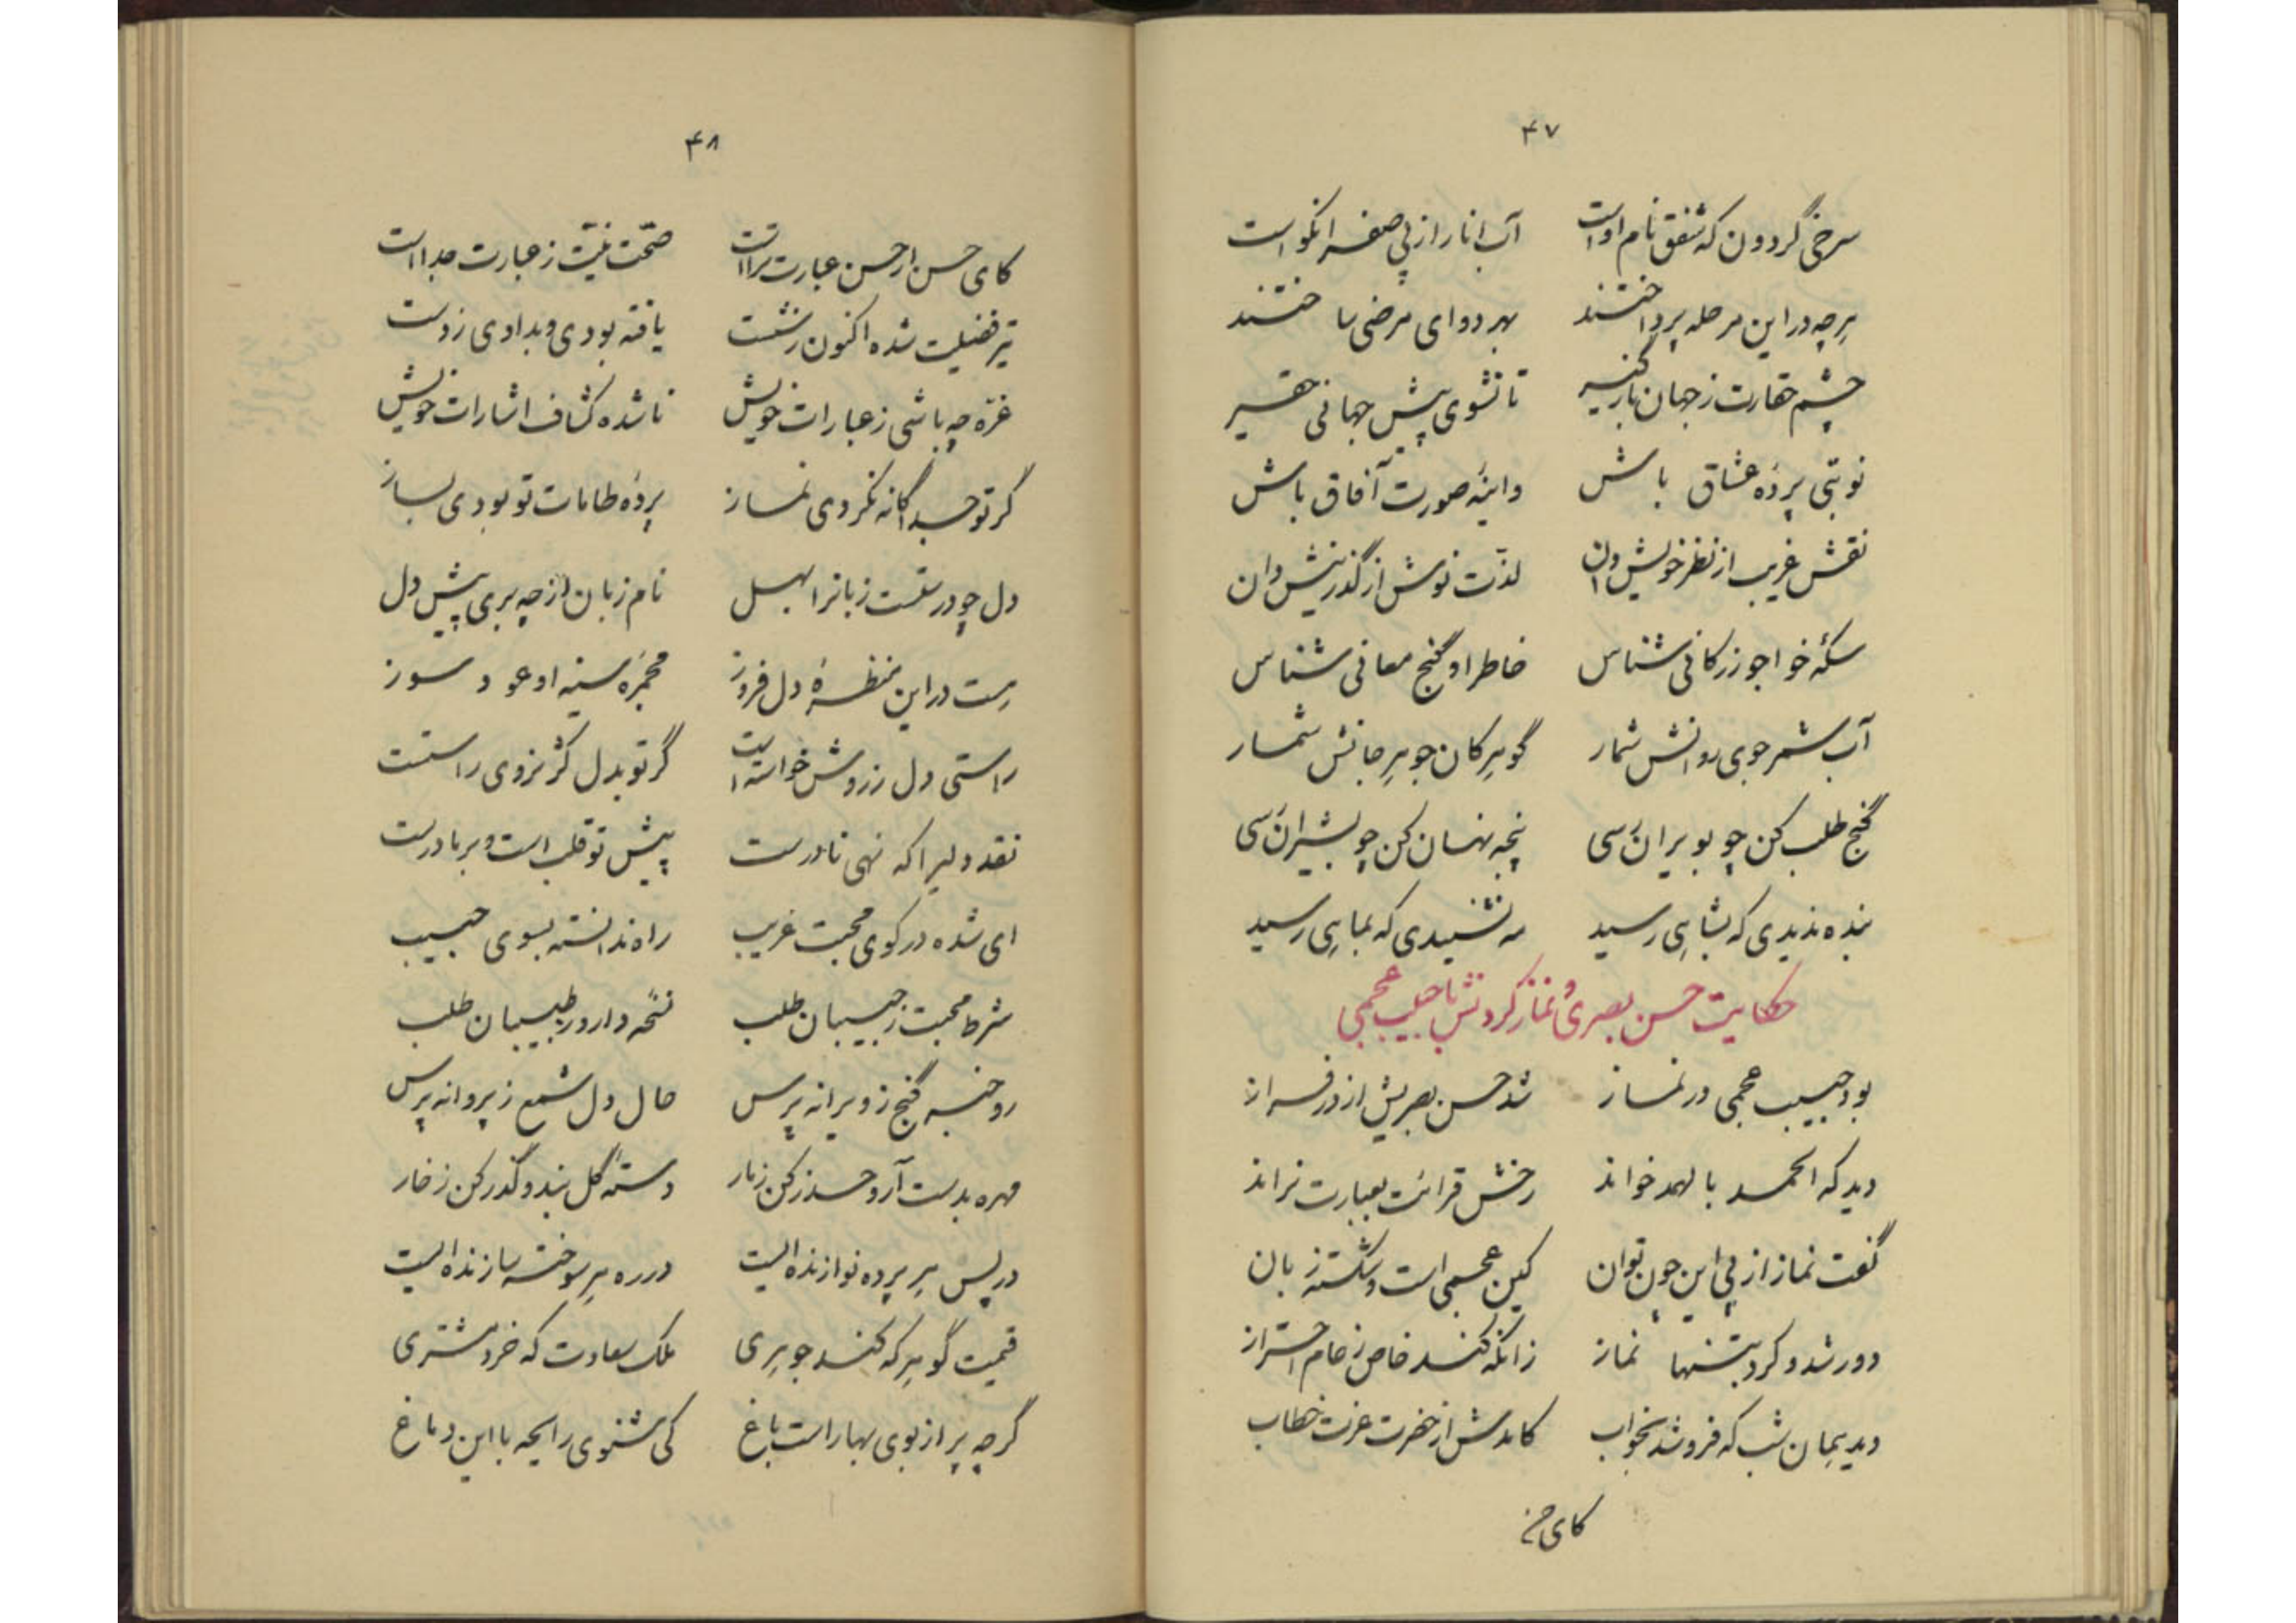 ۴۷
سرخی گردون که شفق نام اوست آب انار از پی صفرا نکو است
هرچه در این مرحله پرداختند بهر دوای مرضی ساختند
چشم حقارت ز جهان بازگیر تا نشوی پیش جهانی حقیر
نوبتی پردهٔ عشاق باش واینهٔ صورت آفاق باش
نقش غریب از نظر خویش دان لذّت نوش از گذر نیش دان
سکّهٔ خواجو زر کانی شناس خاطر او گنج معانی شناس
آب شمر جوی روانش شمار گوهر کان جوهر جانش شمار
گنج طلب کن چو بویران رسی پنجه نهان کن چو بشیران رسی
بنده ندیدی که بشاهی رسید مه نشنیدی که بماهی رسید
حکایت حسن بصری و نماز کردنش با حبیب عجمی
بود حبیب عجمی در نماز شد حسن بصریش از در فراز
دید که الحمد بالهمد خواند رخش قرائت بعبارت نراند
گفت نماز از پی این چون توان کین عجمی است و شکسته زبان
دور شد و کرد بتنها نماز زانکه کند خاص ز عام احتراز
دید همان شب که فرو شد بخواب کامدش از حضرت عزت خطاب
کای حسن
۴۸
کای حسن ار حسن عبارت تراست صحّت نیّت ز عبارت جداست
تیر فضیلت شده اکنون ز شست یافته بودی و بدادی ز دست
غرّه چه باشی ز عبارات خویش ناشده کشاف اشارات خویش
گر تو جداگانه نکردی نماز پردهٔ طامات تو بودی بساز
دل چو درستست زبانرا بهل نام زبان از چه بری پیش دل
هست در این منظرهٔ دل فروز مجمرهٔ سینه او عود سوز
راستی دل ز روش خواسته است گر تو بدل کژ نروی راستست
نقد دلیرا که نهی نادرست پیش تو قلب است و بر ما درست
ای شده در کوی محبت غریب راه ندانسته بسوی حبیب
شرط محبت ز حبیبان طلب نسخه دارو ز طبیبان طلب
رو خبر گنج ز ویرانه پرس حال دل شمع ز پروانه پرس
مهره بدست آر و حذر کن ز مار دستهٔ گل بند و گذر کن ز خار
در پس هر پرده نوازنده ایست در ره هر سوخته سازنده ایست
قیمت گوهر که کند جوهری ملک سعادت که خرد مشتری
گرچه پر از بوی بهار است باغ کی شنوی رایحه با این دماغ